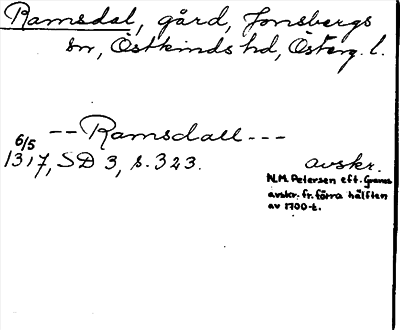 Ramsdal, gård, Jonsbergs
sn, Östkinds hd, Österg. l.
-- Ramsdall ---
6/5
1317, SD 3, s. 323. avskr.
N.M. Petersen eft. Grams
avskr. fr. förra hälften
av 1700-t.